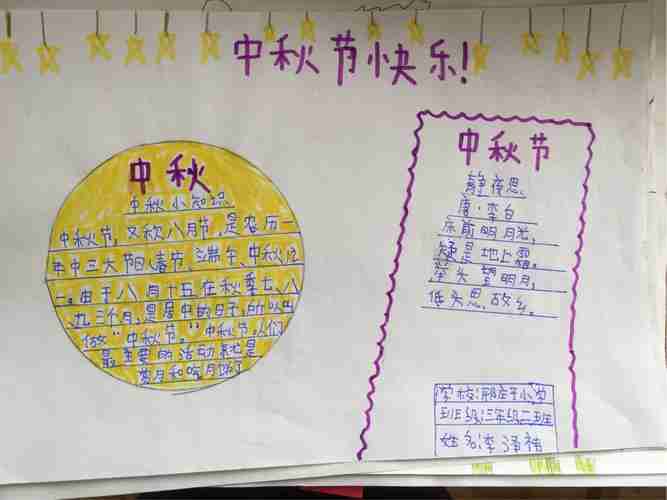 中秋节快乐!
中秋
中秋小知识
中秋节,又称八月节,是农历一
年中三大节,春节、端午、中秋
一。由于八月十五在秋季七、八
九三个月,是居中的日子,所以
做“中秋节。”中秋节,人们
最主要的活动就是
赏月和吃月饼了
中秋节
静夜思
唐·李白
床前明月光,
疑是地上霜。
举头望明月,
低头思故乡。
学校:邢庄子小学
班级:三年级二班
姓名:李泽祎